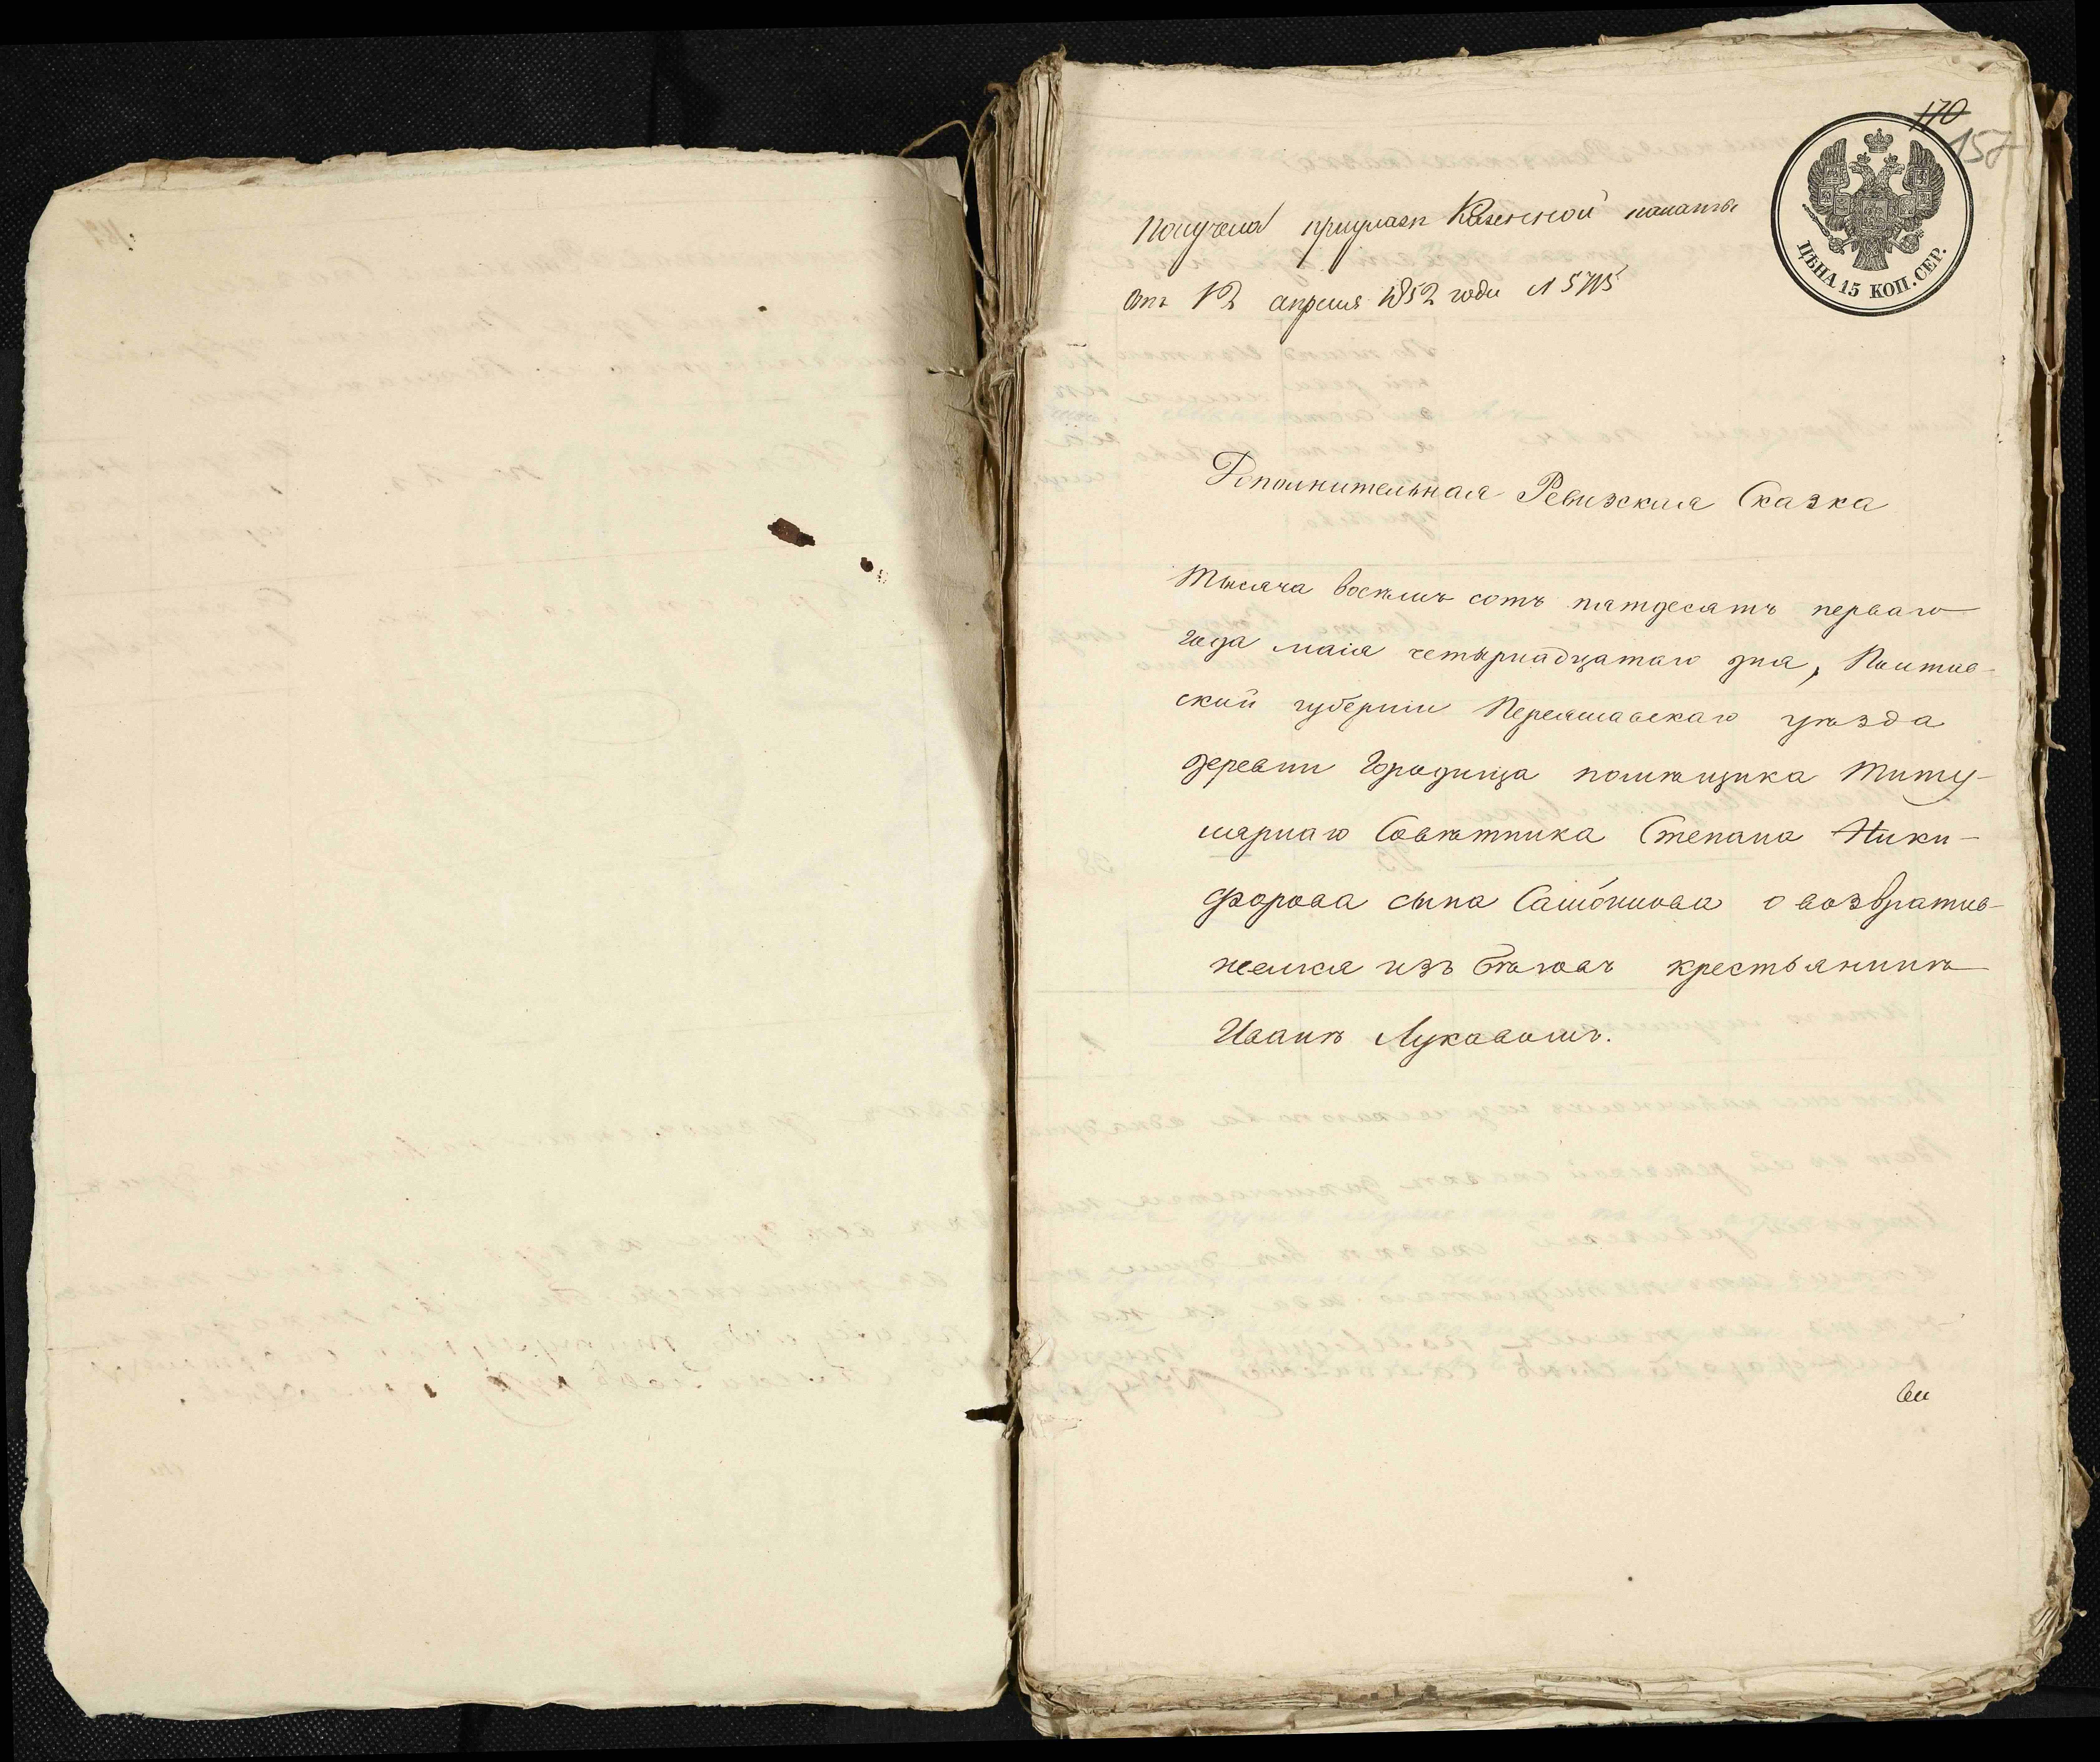 170
157
ЦѢНА 15 КОП. СЕР.
Получена при указѣ Казенной палаты
отъ 12 апреля 1852 года №
Дополнительная Ревизская Сказка
Тысяча восемь сотъ пятдесятъ перваго
года маія четырнадцатаго дня, Полтав-
ской губерніи Переяславскаго уѣзда
деревни Городища помѣщика Титу-
лярнаго Совѣтника Степана Ники-
форова сына о возвратив-
шемся изъ бѣговъ крестьянинѣ
Иванѣ Луковомъ.